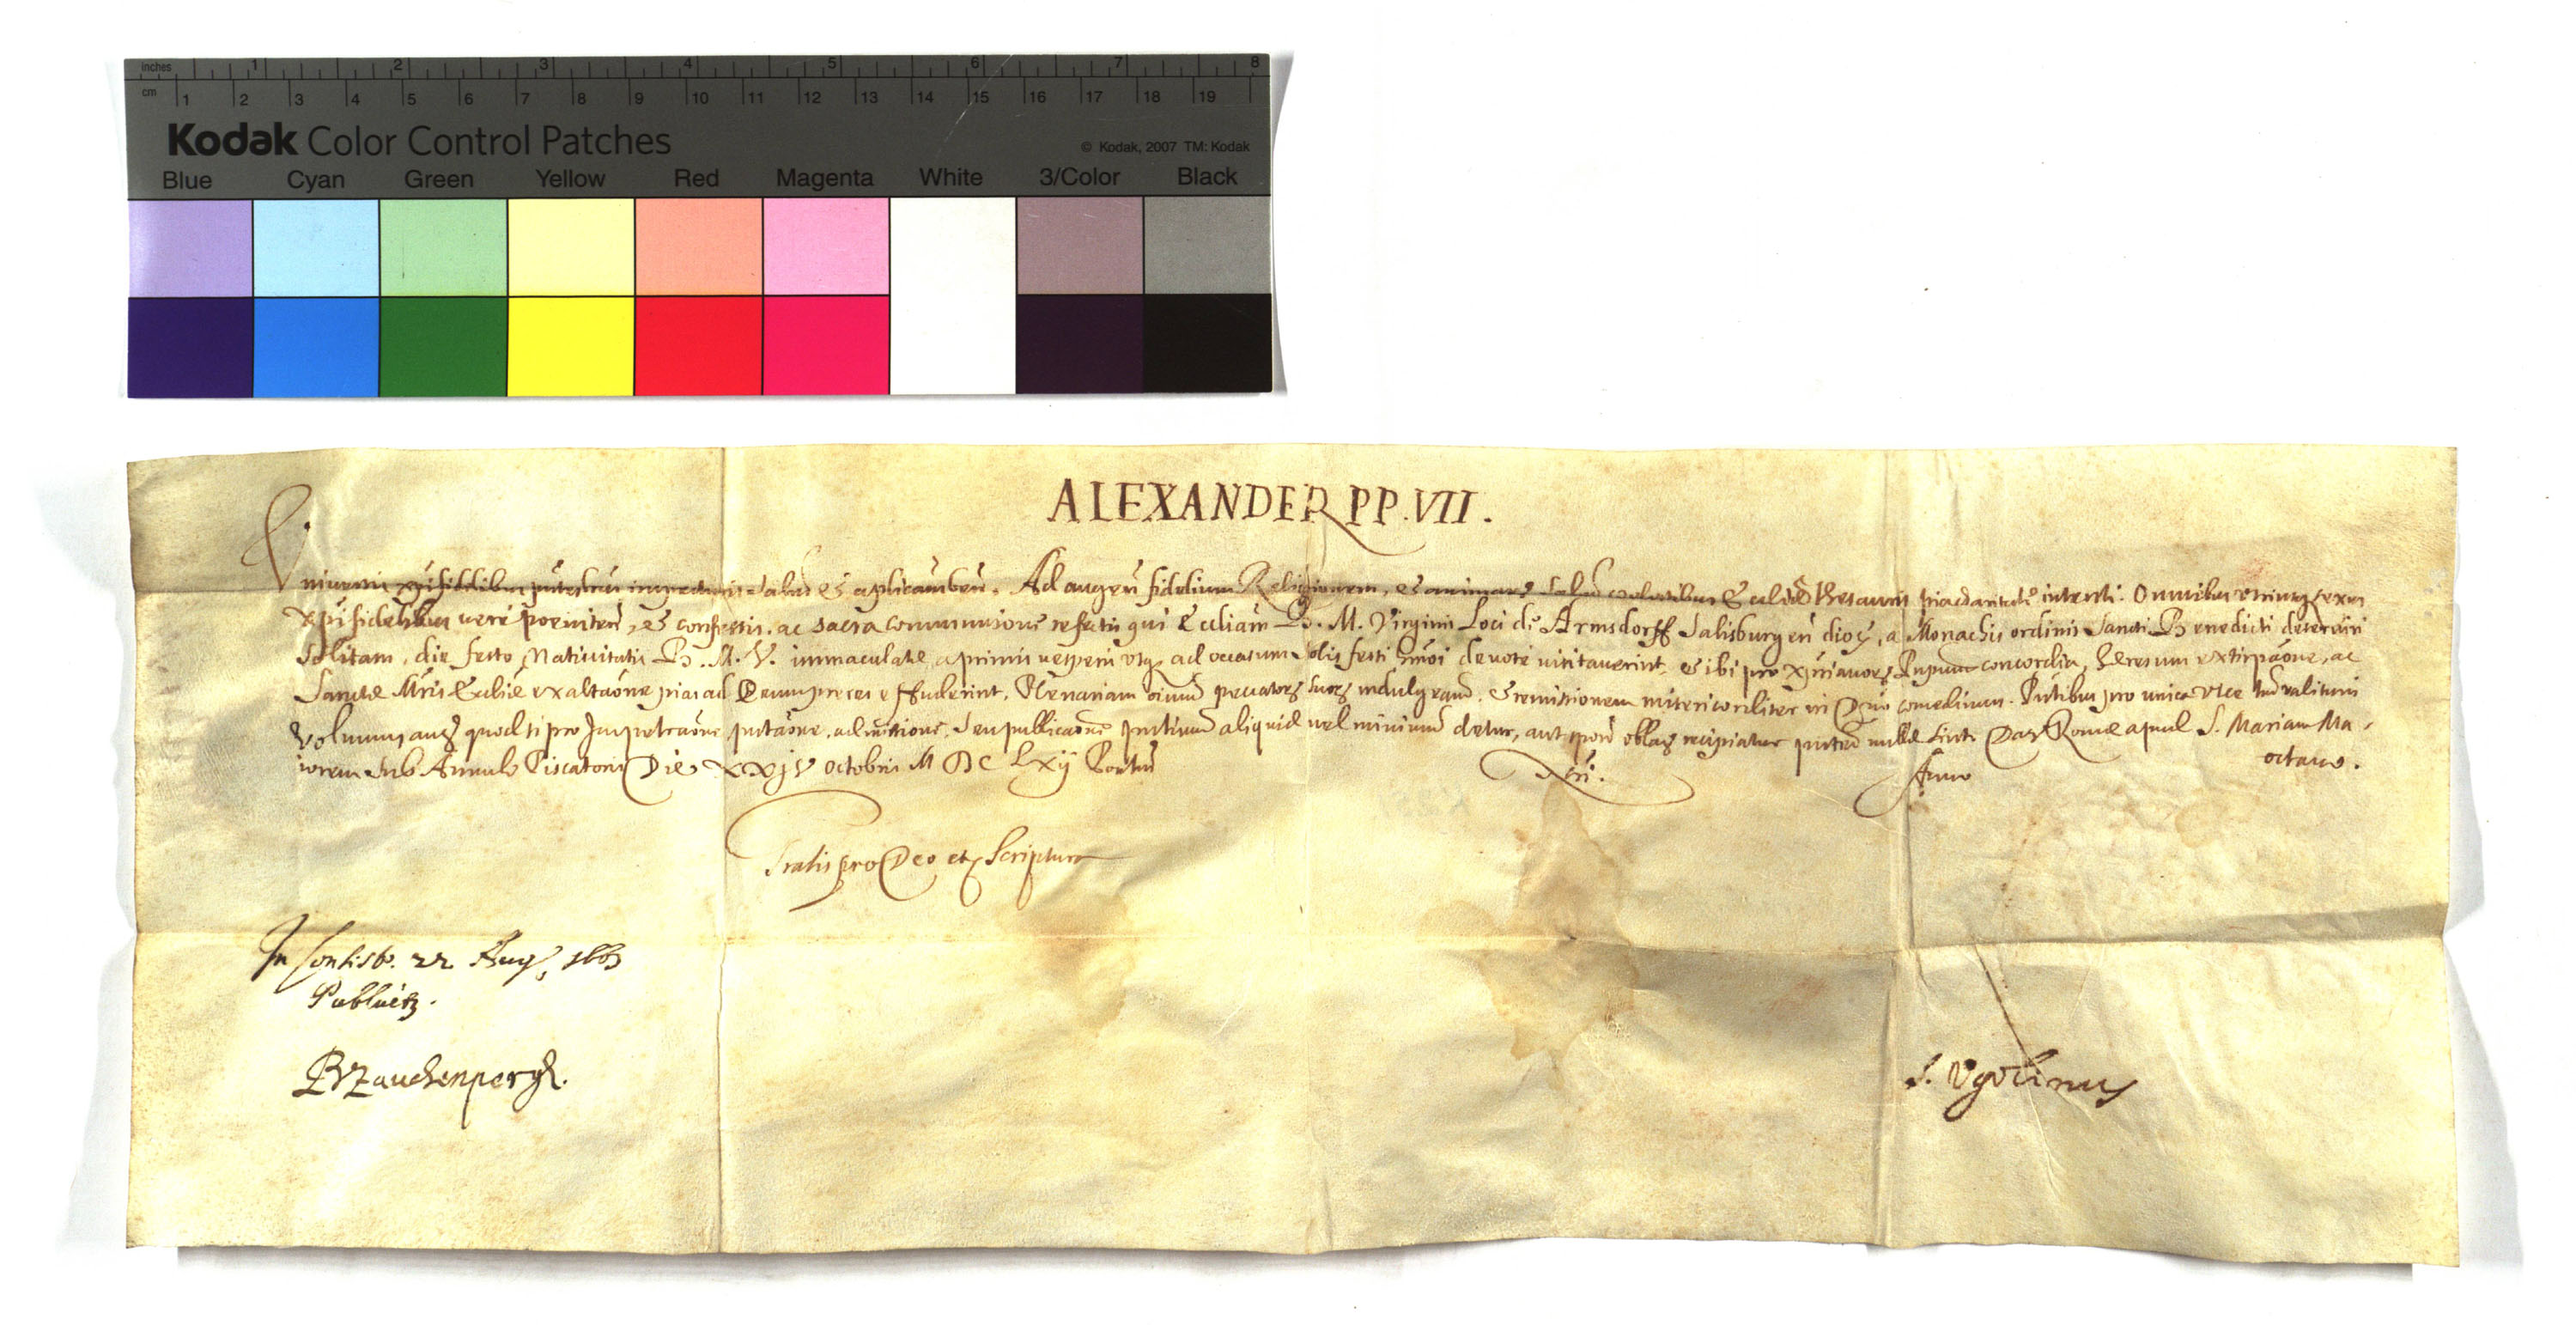 inches 1 2 3 4 5 6 7 8
cm 1 2 3 4 5 6 7 8 9 10 11 12 13 14 15 16 17 18 19
Kodak Color Control Patches
© Kodak, 2007 TM: Kodak
Blue Cyan Green Yellow Red Magenta White 3/Color Black
ALEXANDER PP. VII.
Vniuersis xpifidelibus salutem et aplicam ben. Ad augen fidelium Religionem, et animarum salutem thesauris pia charitate intenti. Omnibus utriusq sexus
xpifidelibus vere poeniten, et confessis, ac sacra communione refectis qui Eccliam B. M. Virginis Loci de Armsdorff Salisburgen dioc, a Monachis ordinis Sancti Benedicti deseruiri
solitam, die festo Natiuitatis B. M. V. immaculate, a primis vesperis usq ad occasum solis festi hmoi deuote visitauerint, et ibi pro xpnianorum Prpum concordia, heresum extirpaone, ac
Sancte Mris Ecclie exaltaone pias ad Deum preces effuderint, Plenariam oium peccatorum suorum indulgeam, et remissionem misericorditer in Dno concedimus. Pntibus pro unica vice tm valituris
Volumus aut quod si pro Impetraone, pntaone, admissione, seu publicaone pntium aliquid vel minimum detur, aut sponte oblatum recipiatur pntes nulle sint. Dat Rome apud S. Mariam Ma-
iorem sub Annulo Piscatoris Die XXIV octobris MDCLXij Pontus Nri. Anno octauo.
Gratis pro Deo et Scriptura
In Consisto. 22 Aug, 1663
Publicetz.
BZauchenpergk.
S. Vgolinus